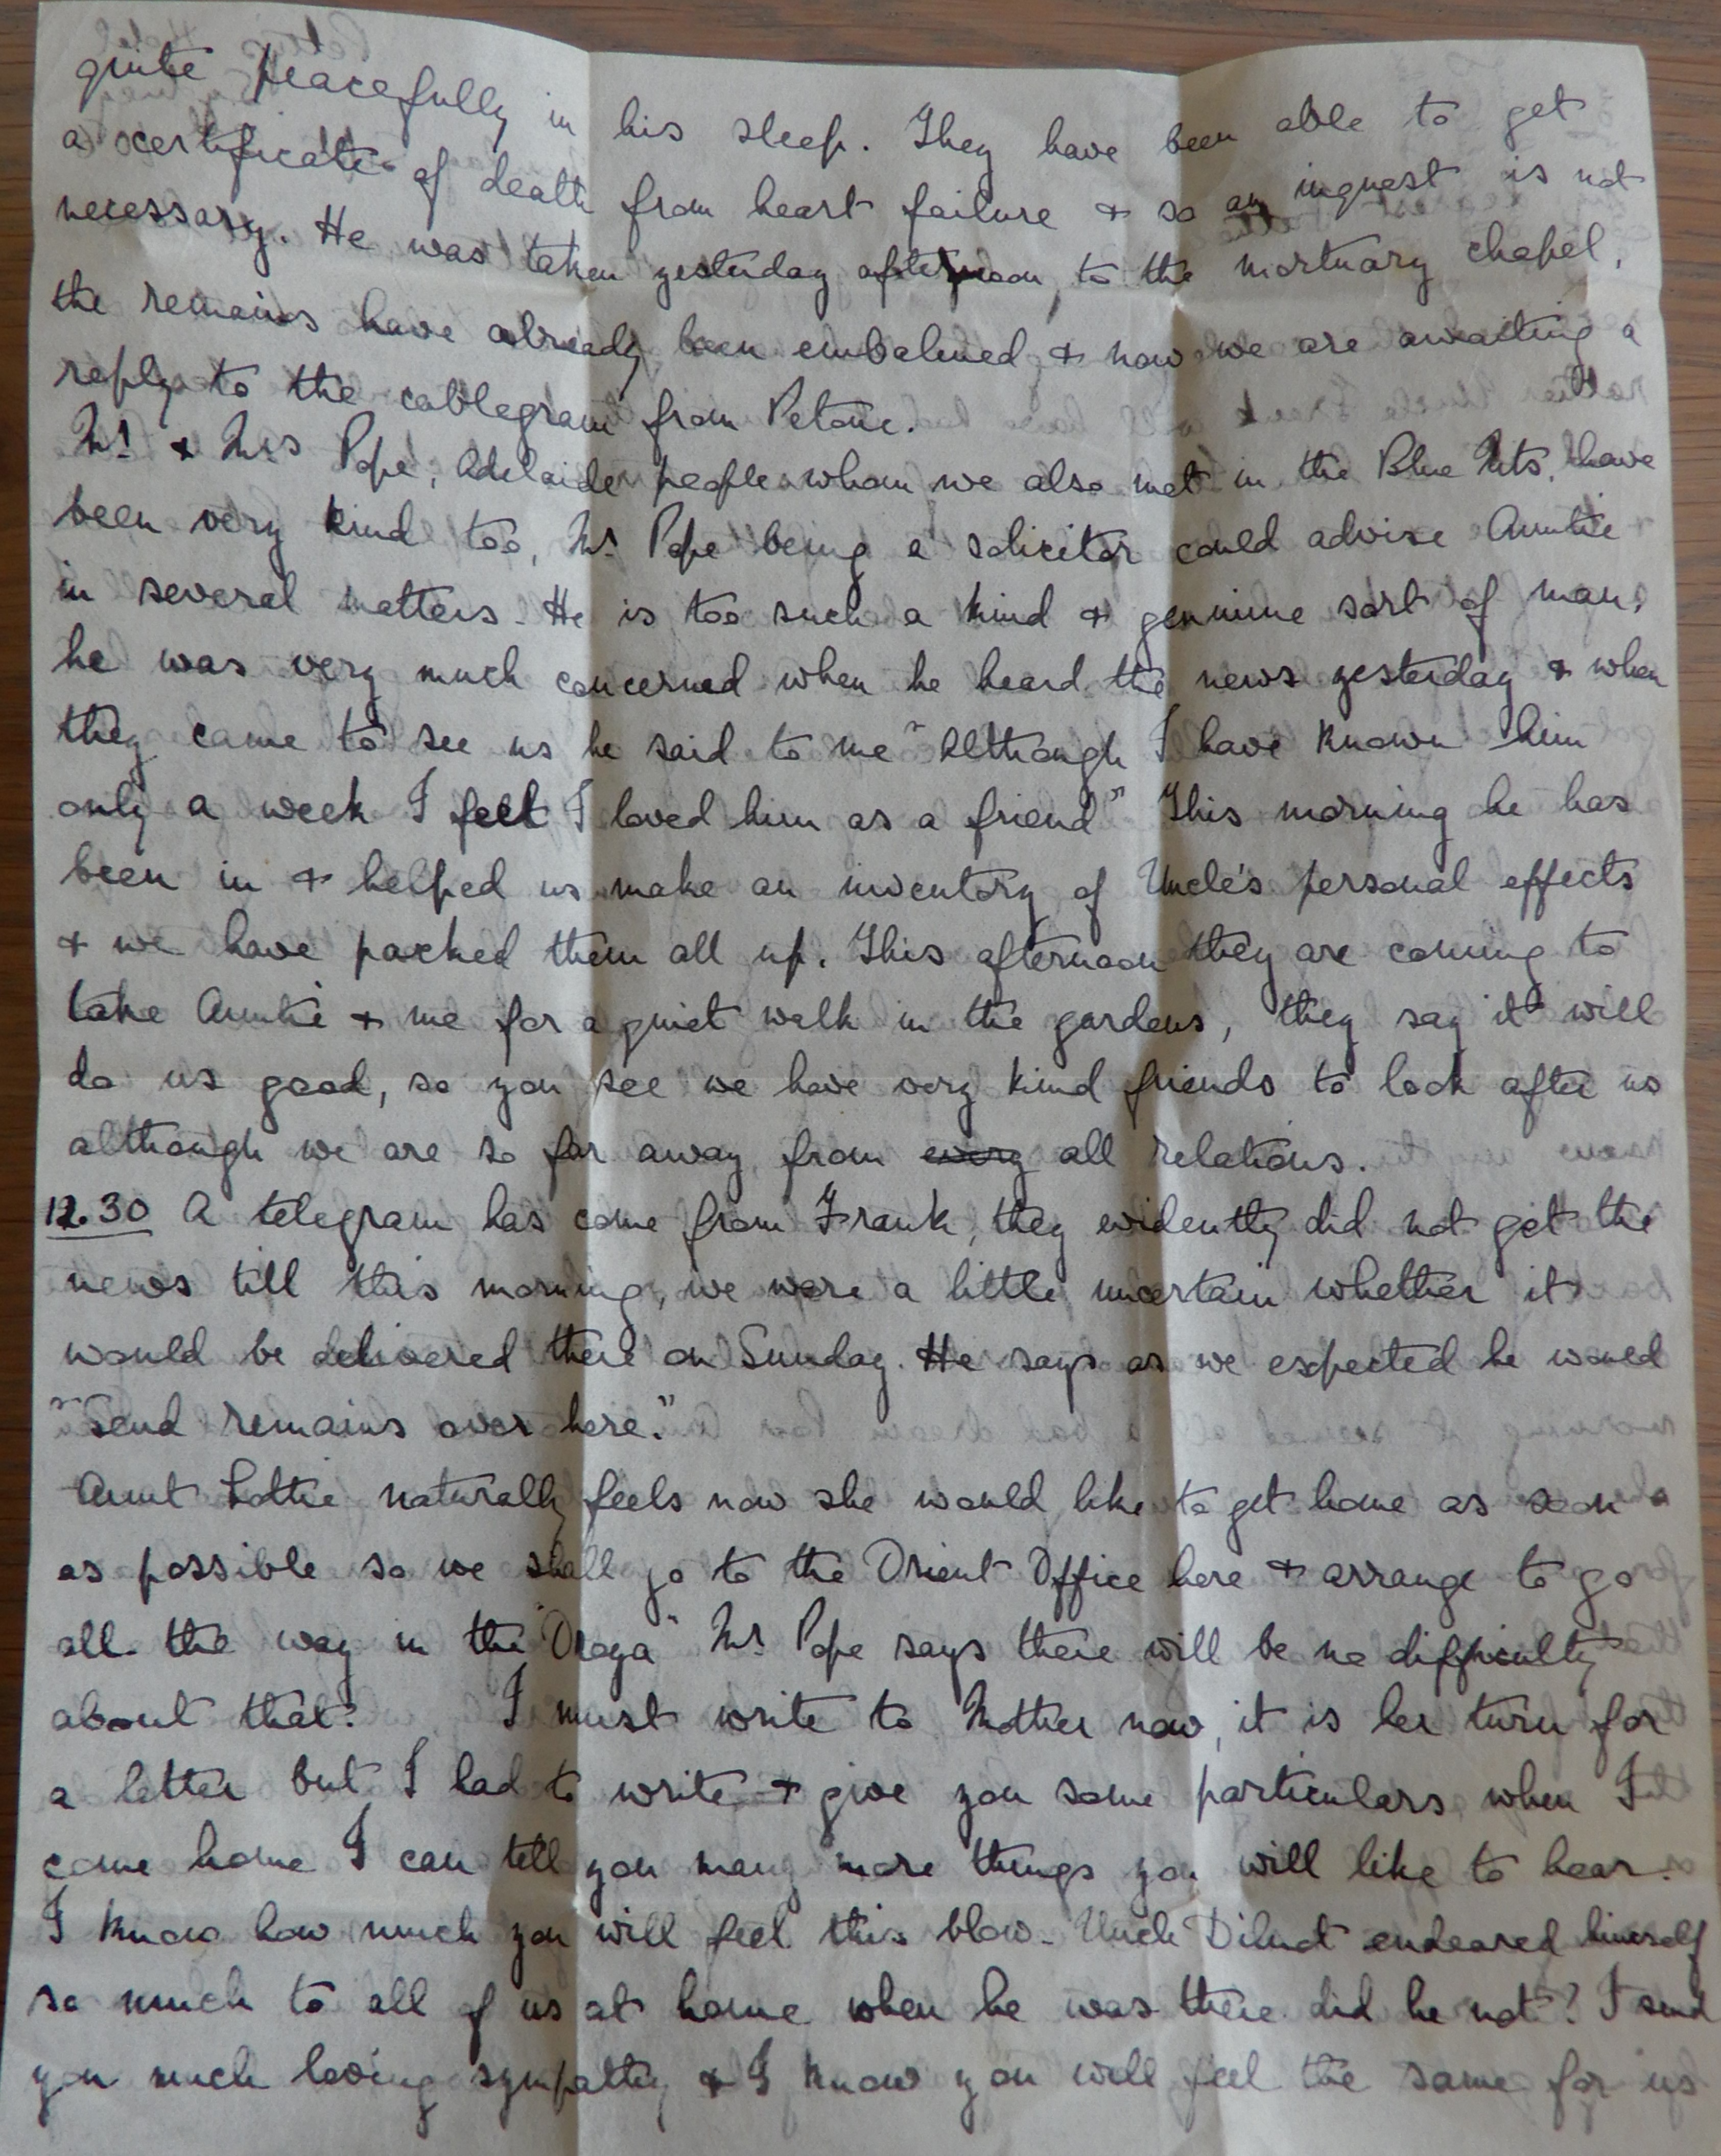 quite peacefully in his sleep. They have been able to get
a certificate of death from heart failure & so an inquest is not
necessary. He was taken yesterday afternoon, to the mortuary chapel,
the remains have already been embalmed & now we are awaiting a
reply to the cablegram from Petone.
Mr & Mrs Pope, Adelaide people whom we also met in the Blue Mts. have
been very kind too, Mr Pope being a solicitor could advise Auntie
in several matters. He is too such a kind & genuine sort of man,
he was very much concerned when he heard the news yesterday & when
they came to see us he said to me "Although I have known him
only a week I feel I loved him as a friend" This morning he has
been in & helped us make an inventory of Uncle's personal effects
& we have packed them all up. This afternoon they are coming to
take Auntie & me for a quiet walk in the gardens, they say it will
do us good, so you see we have very kind friends to look after us
although we are so far away from every all relations.
12.30 A telegram has come from Frank, they evidently did not get the
news till this morning, we were a little uncertain whether it
would be delivered there on Sunday. He says as we expected he would
"Send remains over here."
Aunt Lottie naturally feels now she would like to get home as soon
as possible so we shall go to the Orient Office here & arrange to go
all the way in the "Otega" Mr Pope says there will be no difficulty
about that. I must write to Mother now, it is her turn for
a letter but I had to write & give you some particulars, when I
come home I can tell you many more things you will like to hear.
I know how much you will feel this blow. Uncle endeared himself
so much to all of us at home when he was there did he not? I send
you much loving sympathy & I know you will feel the same for us